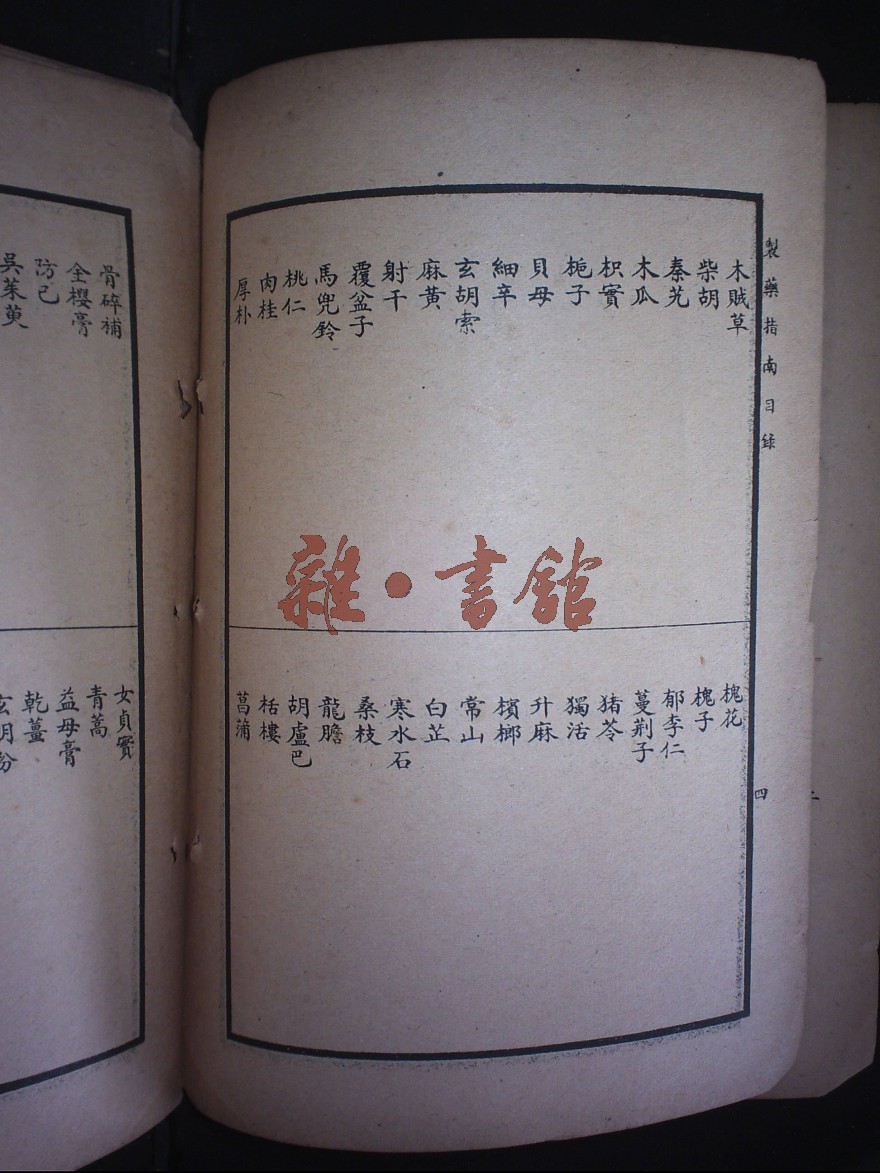 製藥指南目錄
四
木賊草
柴胡
秦艽
木瓜
枳實
梔子
貝母
細辛
玄胡索
麻黃
射干
覆盆子
馬兜鈴
桃仁
肉桂
厚朴
槐花
槐子
郁李仁
蔓荆子
猪苓
獨活
升麻
檳榔
常山
白芷
寒水石
桑枝
龍膽
胡盧巴
栝樓
菖蒲
骨碎補
金櫻膏
防己
吳茱萸
女貞實
青蒿
益母膏
乾薑
玄明粉
雜·書館